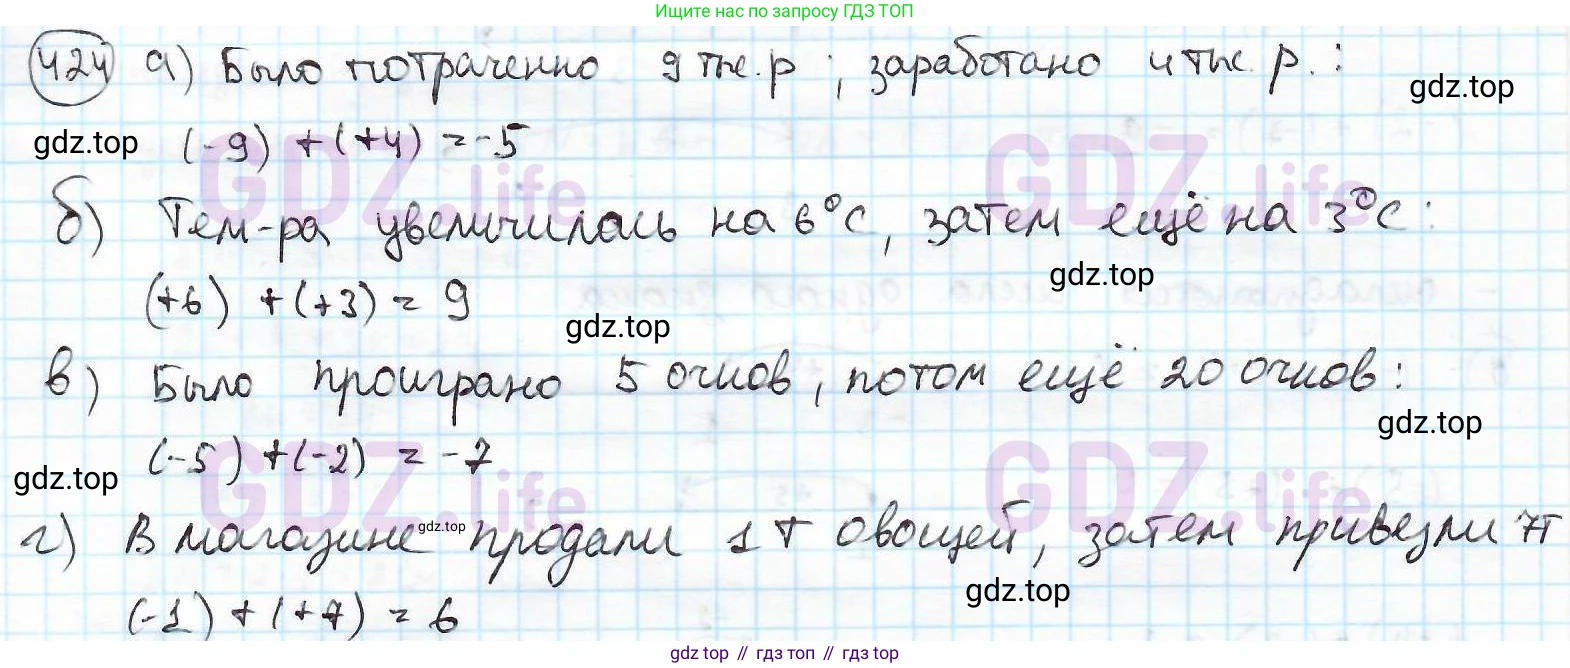 Ищите нас по запросу ГДЗ ТОП
424 а) Было потраченно 9 тыс. р ; заработано 4 тыс. р. :
gdz.top
gdz.top
(-9) + (+4) = -5
GDZ.life GDZ.life
б) Тем-ра увеличилась на 6°С, затем ещё на 3°С :
gdz.top
(+6) + (+3) = 9
gdz.top
в) Было проиграно 5 очков, потом ещё 20 очков :
gdz.top
(-5) + (-2) = -7
gdz.top
GDZ.life GDZ.life
г) В магазине продали 1 т овощей, затем привезли 7т
gdz.top
gdz.top
(-1) + (+7) = 6
gdz top // гдз топ // gdz top